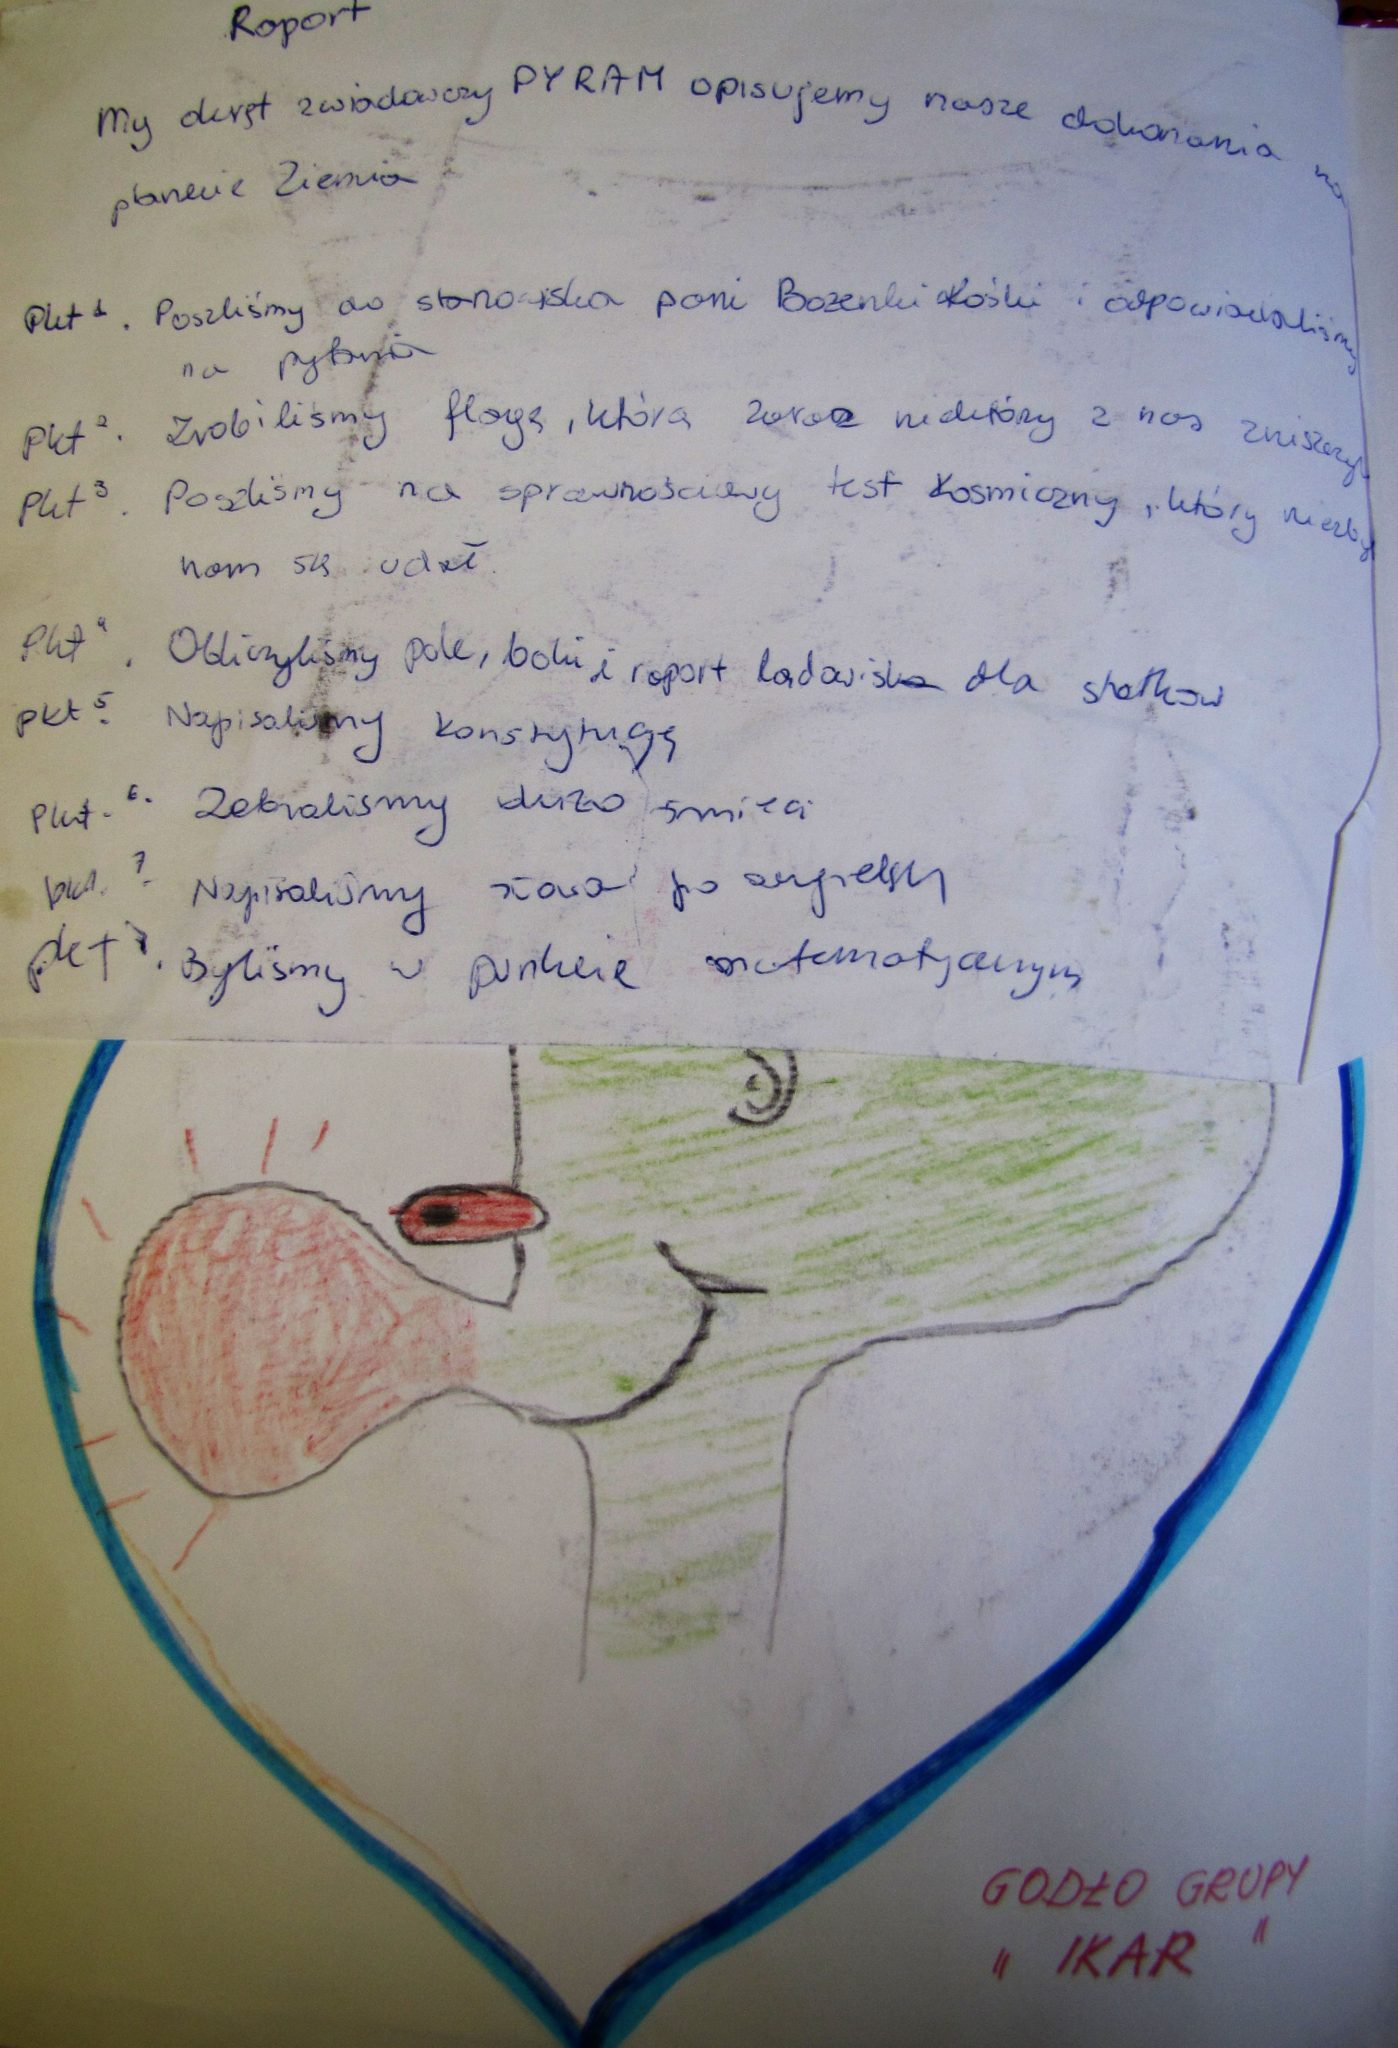 Raport
My okręt zwiadowczy PYRAM opisujemy nasze dokonania na
planecie Ziemia
Pkt 1. Poszliśmy do stanowiska pani Bożenki Kośki i odpowiadaliśmy
na pytania
Pkt 2. Zrobiliśmy flagę, którą zaraz niektóry z nas zniszczył
Pkt 3. Poszliśmy na sprawnościowy test kosmiczny, który niezby
nam się udał.
Pkt 4. Obliczyliśmy pole, boki i raport lądowiska dla statków
pkt 5. Napisaliśmy konstytucję
Pkt. 6. Zebraliśmy dużo śmieci
pkt. 7. Napisaliśmy słowa po angielsky
pkt 8. Byliśmy w punkcie matematycznym
GODŁO GRUPY
" IKAR "